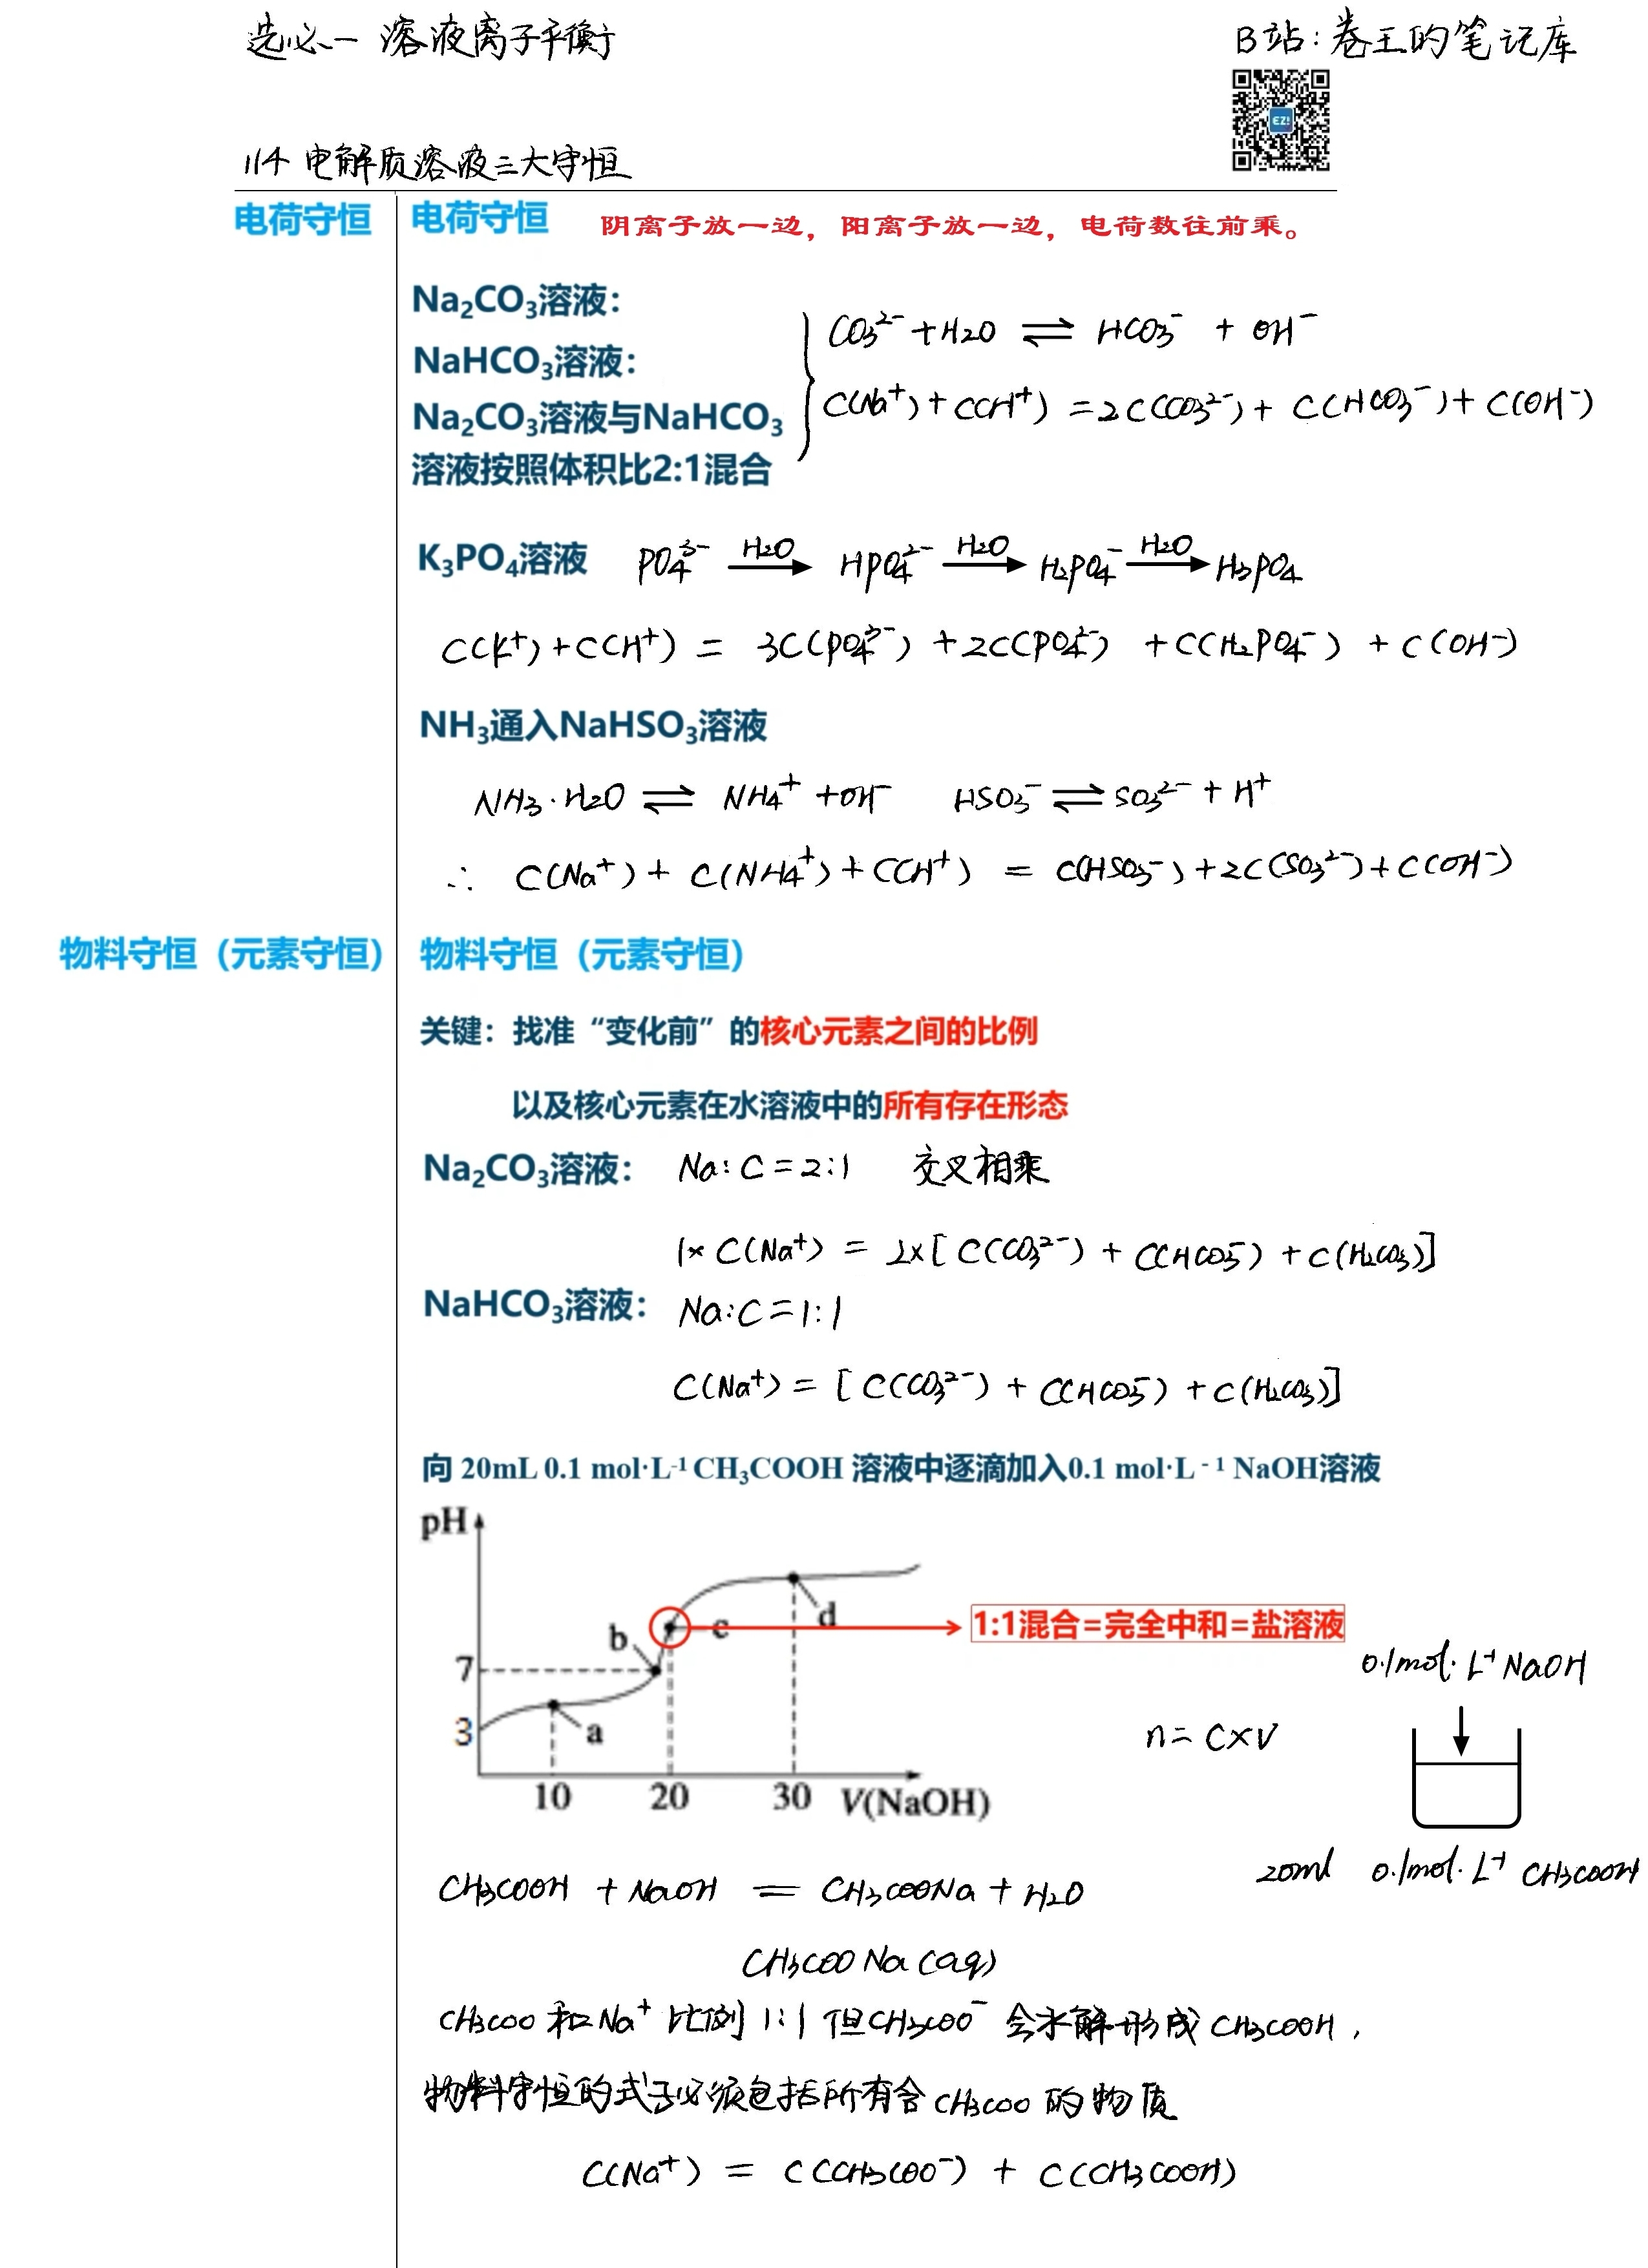 选必一 溶液离子平衡
B站:卷王的笔记库
EZ!
114 电解质溶液三大守恒
电荷守恒
电荷守恒 阴离子放一边，阳离子放一边，电荷数往前乘。
Na₂CO₃溶液：
CO₃²⁻ + H₂O ⇌ HCO₃⁻ + OH⁻
NaHCO₃溶液：
C(Na⁺) + C(H⁺) = 2C(CO₃²⁻) + C(HCO₃⁻) + C(OH⁻)
Na₂CO₃溶液与NaHCO₃
溶液按照体积比2:1混合
K₃PO₄溶液 PO₄³⁻ —H₂O→ HPO₄²⁻ —H₂O→ H₂PO₄⁻ —H₂O→ H₃PO₄
C(K⁺) + C(H⁺) = 3C(PO₄³⁻) + 2C(PO₄²⁻) + C(H₂PO₄⁻) + C(OH⁻)
NH₃通入NaHSO₃溶液
NH₃·H₂O ⇌ NH₄⁺ + OH⁻ HSO₃⁻ ⇌ SO₃²⁻ + H⁺
∴ C(Na⁺) + C(NH₄⁺) + C(H⁺) = C(HSO₃⁻) + 2C(SO₃²⁻) + C(OH⁻)
物料守恒（元素守恒）
物料守恒（元素守恒）
关键：找准“变化前”的核心元素之间的比例
以及核心元素在水溶液中的所有存在形态
Na₂CO₃溶液： Na:C=2:1 交叉相乘
1×C(Na⁺) = 2×[C(CO₃²⁻) + C(HCO₃⁻) + C(H₂CO₃)]
NaHCO₃溶液： Na:C=1:1
C(Na⁺) = [C(CO₃²⁻) + C(HCO₃⁻) + C(H₂CO₃)]
向 20mL 0.1 mol·L⁻¹ CH₃COOH 溶液中逐滴加入0.1 mol·L⁻¹ NaOH溶液
pH
d
b c 1:1混合=完全中和=盐溶液
7
0.1mol·L⁻¹ NaOH
3 a
n=C×V
10 20 30 V(NaOH)
20ml 0.1mol·L⁻¹ CH₃COOH
CH₃COOH + NaOH = CH₃COONa + H₂O
CH₃COONa(aq)
CH₃COO 和 Na⁺ 比例 1:1 但CH₃COO⁻ 会水解形成 CH₃COOH,
物料守恒的式子必须包括所有含CH₃COO 的物质
C(Na⁺) = C(CH₃COO⁻) + C(CH₃COOH)